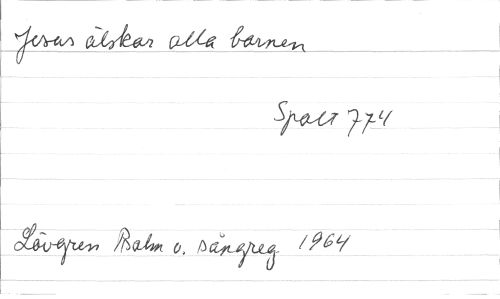 Jesus älskar alla barnen
Spalt 774
Lövgren Psalm o. sångreg 1964